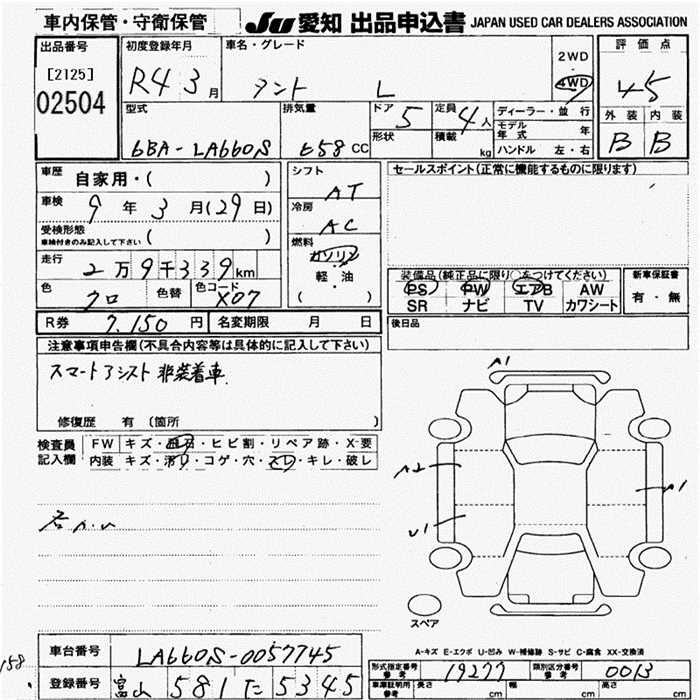 車内保管・守衛保管
JU 愛知 出品申込書 JAPAN USED CAR DEALERS ASSOCIATION
出品番号 初度登録年月 車名・グレード 2WD 4WD 評価点
[2125]
02504
R4 3月 タント L 4.5
型式 排気量 ドア 定員 ディーラー・並行 外装 内装
6BA-LA660S 658cc 5 4人 モデル年式 年 B B
形状 積載 kg ハンドル 左・右
車歴 自家用・( ) シフト AT セールスポイント(正常に機能するものに限ります)
車検 9年3月(29日) 冷房 AC
受検形態 車検付きのみ記入して下さい ( ) 燃料 ガソリン
走行 2万9千339km 軽・油
色 クロ 色替 色コード X07 ( )
装備品(純正品に限り○をつけてください) 新車保証書
PS PW エアB AW 有・無
SR ナビ TV カワシート
R券 7.150円 名変期限 月 日 後日品
注意事項申告欄(不具合内容等は具体的に記入して下さい)
スマートアシスト 非装着車
修復歴 有 (箇所 )
検査員記入欄 FW キズ・飛石・ヒビ割・リペア跡・X-要
内装 キズ・汚レ・コゲ・穴・スレ・キレ・破レ
A1
A2
A1
U1
スペア
A-キズ E-エクボ U-凹み W-補修跡 S-サビ C-腐食 XX-交換済
車台番号 LA660S-0057745
形式指定番号 参考 19277 類別区分番号 参考 0013
登録番号 富山 581 た 5345
車庫証明用 参考 長さ cm 幅 cm 高さ cm
158